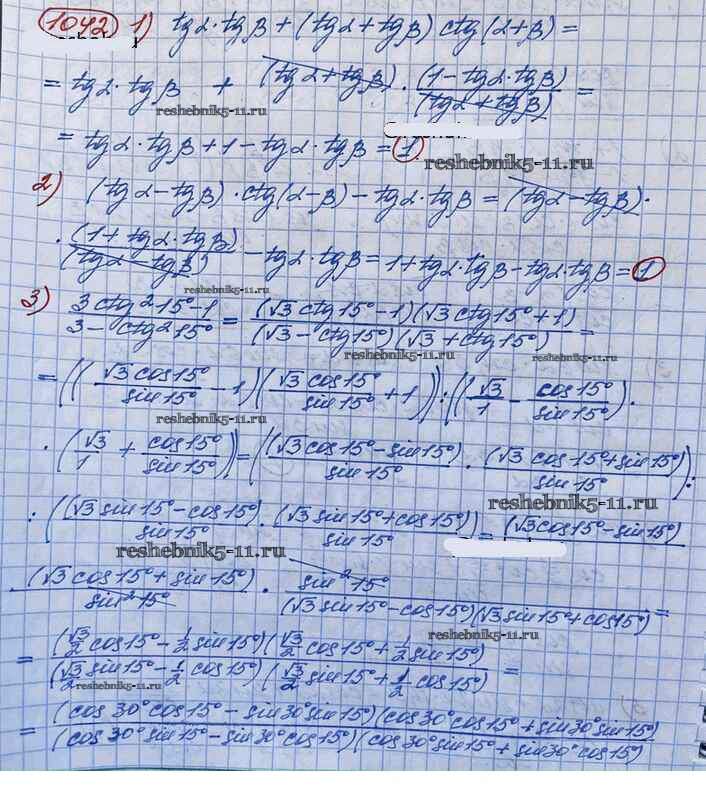 1042 1) tgα·tgβ + (tgα + tgβ) ctg(α+β) =
= tgα·tgβ + (tgα + tgβ) · (1 - tgα·tgβ)/(tgα + tgβ) =
reshebnik5-11.ru
= tgα·tgβ + 1 - tgα·tgβ = 1.
reshebnik5-11.ru
2) (tgα - tgβ) · ctg(α-β) - tgα·tgβ = (tgα - tgβ) ·
· (1 + tgα·tgβ)/(tgα - tgβ) - tgα·tgβ = 1 + tgα·tgβ - tgα·tgβ = 1
reshebnik5-11.ru
3) (3ctg²15° - 1)/(3 - ctg²15°) = (√3ctg15° - 1)(√3ctg15° + 1)/(√3 - ctg15°)(√3 + ctg15°) =
reshebnik5-11.ru reshebnik5-11.ru
= ((√3cos15°/sin15° - 1)(√3cos15°/sin15° + 1)) : ((√3/1 - cos15°/sin15°) ·
reshebnik5-11.ru
· (√3/1 + cos15°/sin15°)) = ((√3cos15° - sin15°)/sin15° · (√3cos15° + sin15°)/sin15°) :
reshebnik5-11.ru
: ((√3sin15° - cos15°)/sin15° · (√3sin15° + cos15°)/sin15°) = (√3cos15° - sin15°)
reshebnik5-11.ru
(√3cos15° + sin15°)/sin²15° · sin²15°/(√3sin15° - cos15°)(√3sin15° + cos15°) =
reshebnik5-11.ru
= (√3/2 cos15° - 1/2 sin15°)(√3/2 cos15° + 1/2 sin15°)/(√3/2 sin15° - 1/2 cos15°)(√3/2 sin15° + 1/2 cos15°) =
reshebnik5-11.ru
= (cos30°cos15° - sin30°sin15°)(cos30°cos15° + sin30°sin15°)/(cos30°sin15° - sin30°cos15°)(cos30°sin15° + sin30°cos15°)